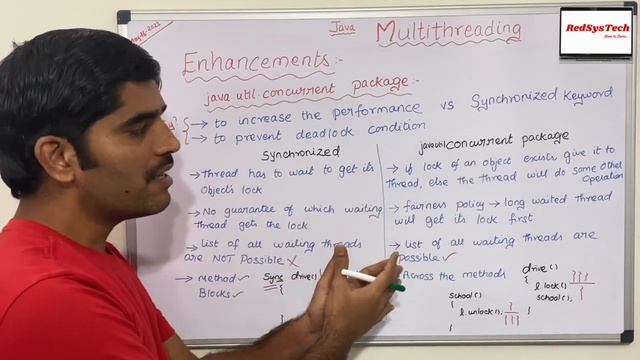 Aug-16-2021
Java
Multithreading
RedSysTech
Enhancements:-
java.util.concurrent package:-
→ to increase the performance vs Synchronized Keyword
→ to prevent deadlock condition
Synchronized
→ Thread has to wait to get its
Object's lock
→ No guarantee of which waiting
thread gets the lock
→ list of all waiting threads
are NOT Possible ✗
→ method ✓
Blocks ✓
Sync drive()
{
}
java.util.concurrent package
→ if lock of an object exists, give it to
Thread, else the thread will do some other
Operation
→ fairness policy → long waited thread
will get its lock first
→ list of all waiting threads are
Possible ✓
Across the methods
school()
{
l.unlock();
}
drive()
{
l.lock();
school();
}